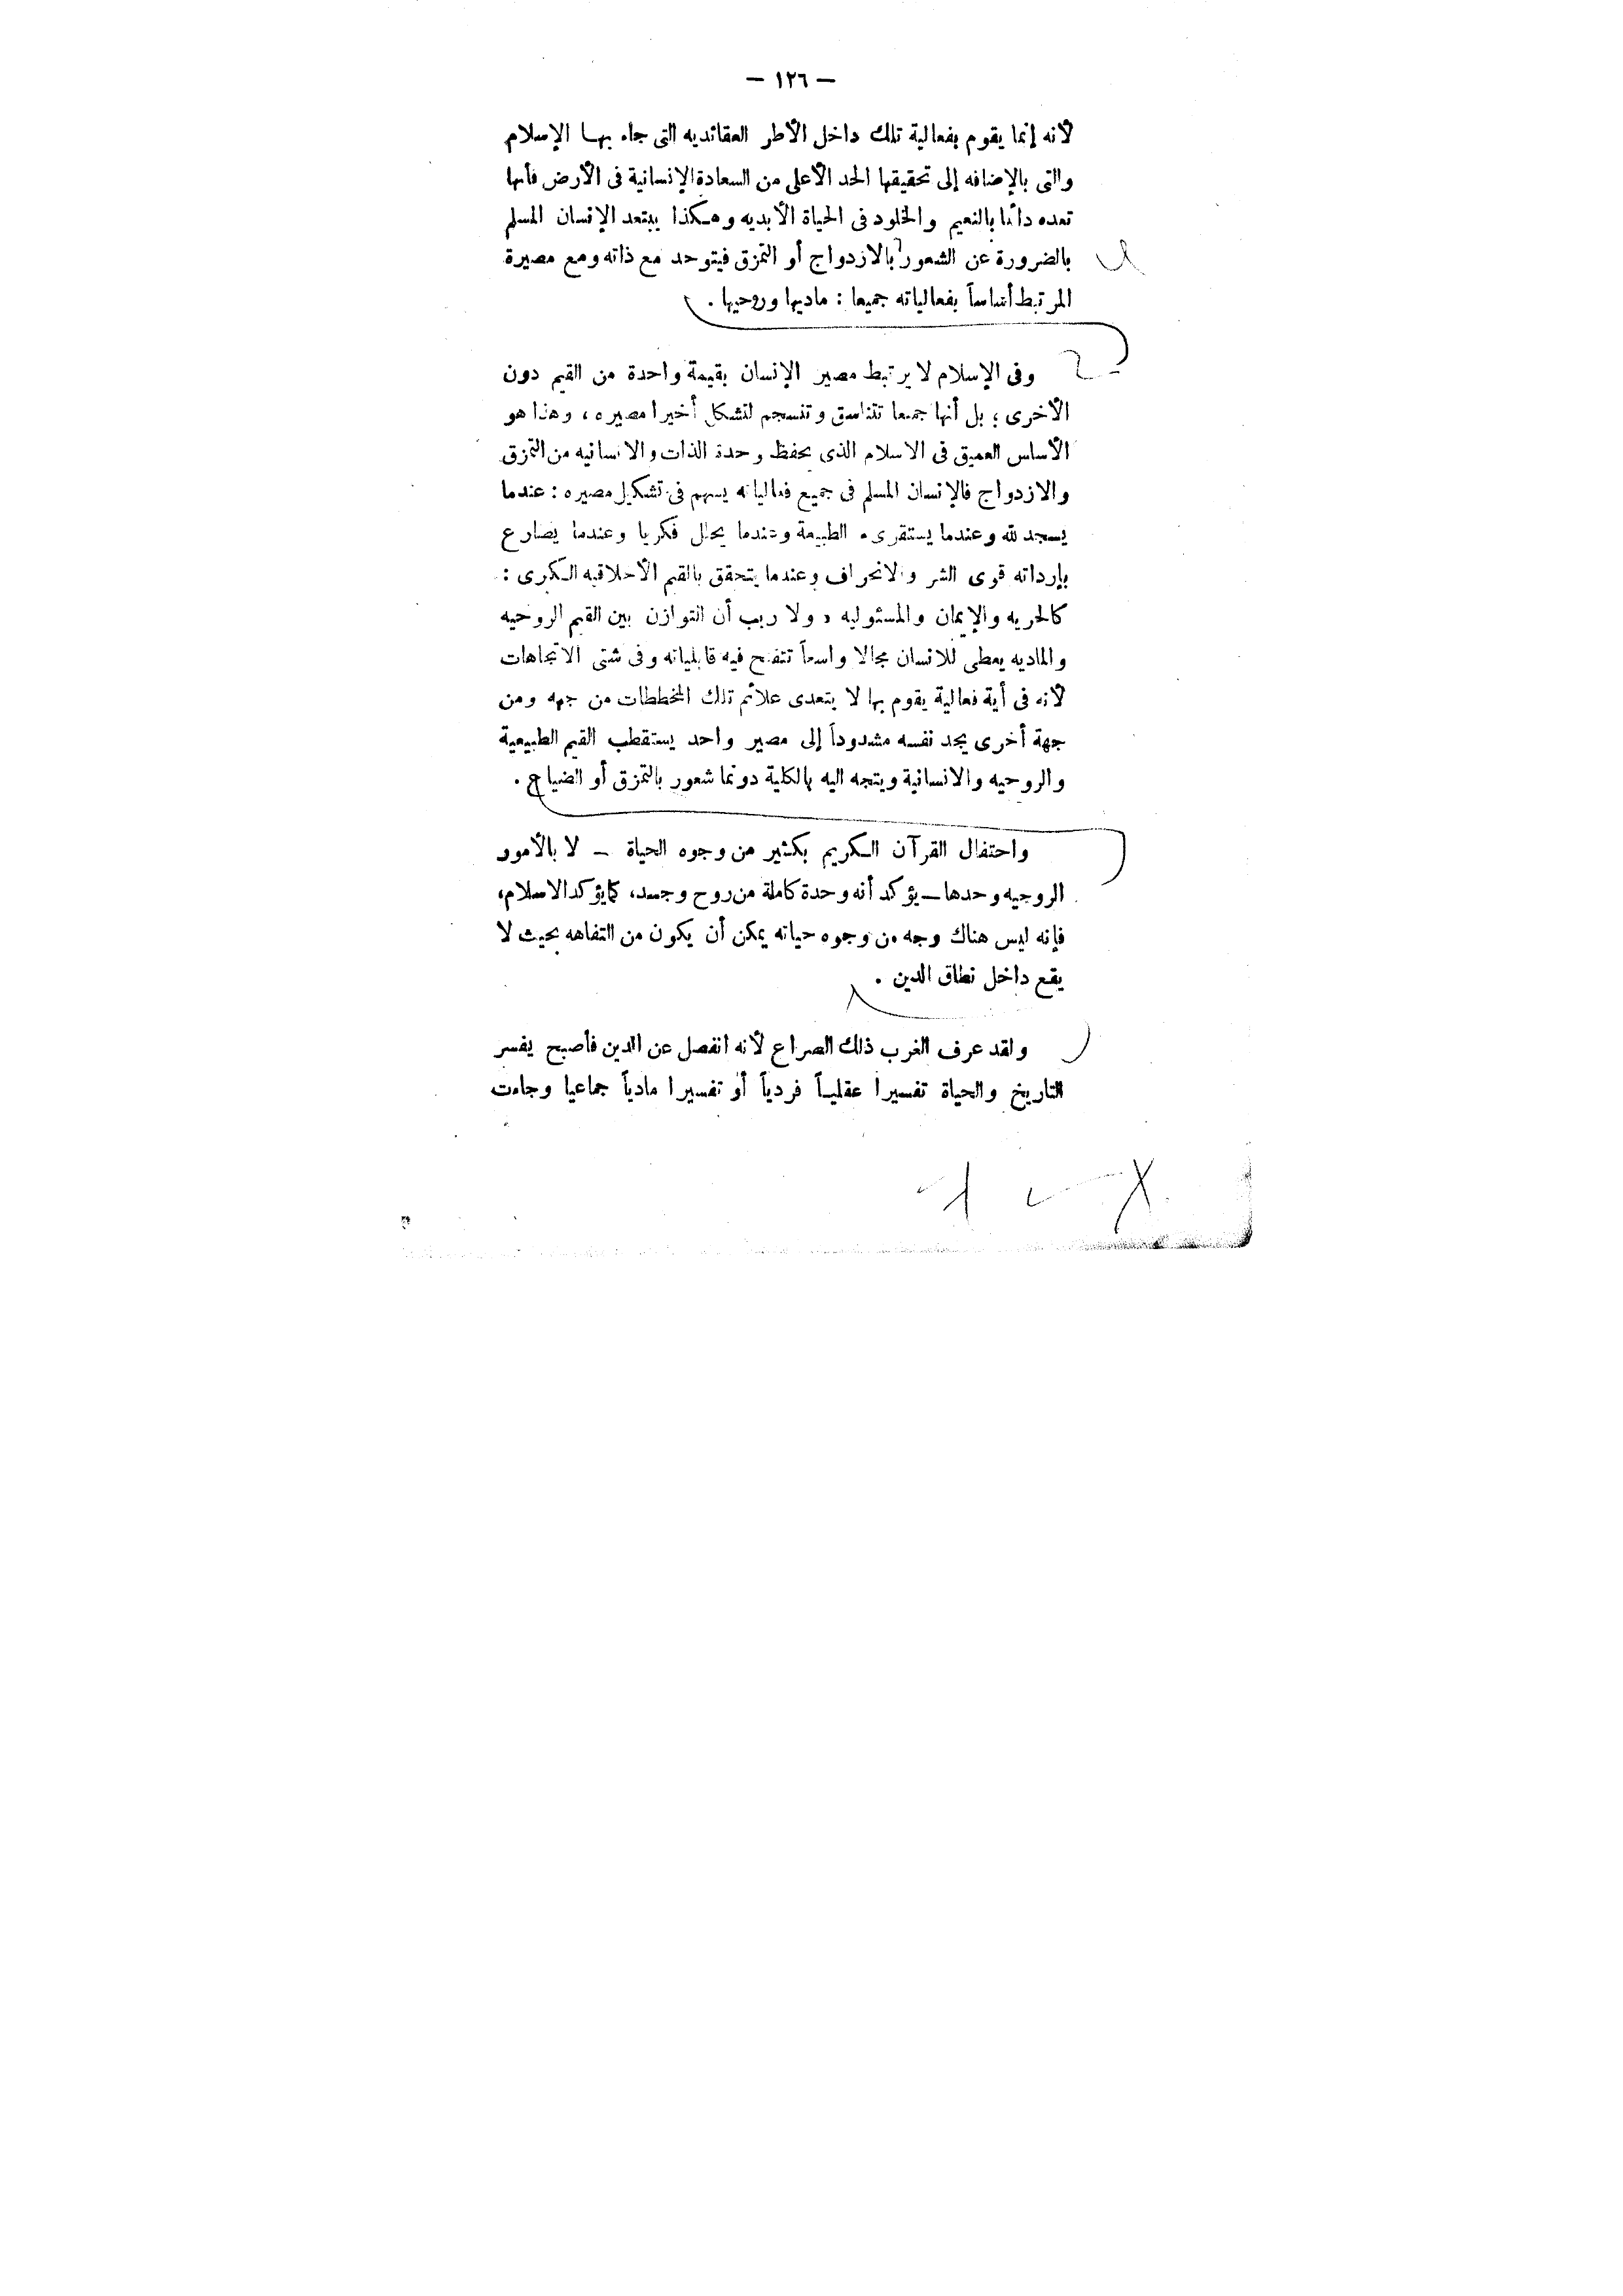 — ١٢٦ —
لأنه إنما يقوم بفعالية تلك داخل الأطر العقائديه التى جاء بها الإسلام
والتى بالإضافه إلى تحقيقها الحد الأعلى من السعادة الإنسانية فى الأرض فأنها
تعده دائما بالنعيم والخلود فى الحياة الأبديه وهكذا يبتعد الإنسان المسلم
بالضرورة عن الشعور بالازدواج أو التمزق فيتوحد مع ذاته ومع مصيرة
المرتبط أساساً بفعالياته جميعا : ماديها وروحيها .
وفى الإسلام لا يرتبط مصير الإنسان بقيمة واحدة من القيم دون
الأخرى ؛ بل أنها جميعا تتناسق وتنسجم لتشكل أخيرا مصيره ، وهذا هو
الأساس العميق فى الاسلام الذى يحفظ وحدة الذات والانسانيه من التمزق
والازدواج فالإنسان المسلم فى جميع فعالياته يسهم فى تشكيل مصيره : عندما
يسجد لله وعندما يستقرىء الطبيعة وعندما يحلل فكريا وعندما يصارع
بإرداته قوى الشر والانحراف وعندما يتحقق بالقيم الأخلاقيه الكبرى :
كالحريه والإيمان والمسئوليه ، ولا ريب أن التوازن بين القيم الروحيه
والماديه يعطى للانسان مجالا واسعاً تتفتح فيه قابلياته وفى شتى الاتجاهات
لأنه فى أية فعالية يقوم بها لا يتعدى علائم تلك المخططات من جهه ومن
جهة أخرى يجد نفسه مشدوداً إلى مصير واحد يستقطب القيم الطبيعية
والروحيه والانسانية ويتجه اليه بالكلية دونما شعور بالتمزق أو الضياع .
واحتفال القرآن الكريم بكثير من وجوه الحياة – لا بالأمور
الروحيه وحدها – يؤكد أنه وحدة كاملة من روح وجسد، كما يؤكد الاسلام،
فإنه ليس هناك وجه من وجوه حياته يمكن أن يكون من التفاهه بحيث لا
يقع داخل نطاق الدين .
ولقد عرف الغرب ذلك الصراع لأنه انفصل عن الدين فأصبح يفسر
التاريخ والحياة تفسيرا عقلياً فردياً أو تفسيرا مادياً جماعيا وجاءت